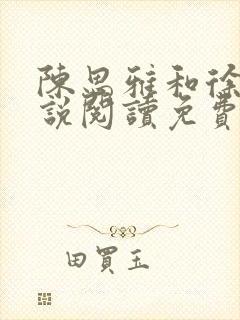 陳思雅和徐
說閱讀免費
田買玉